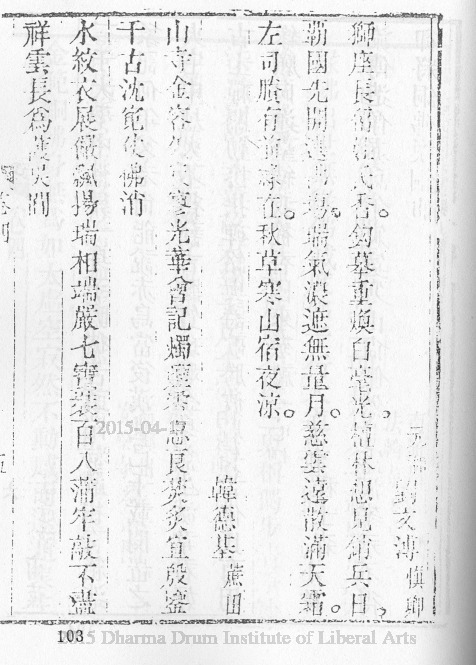 元和 劉文溥 慎卿
獅座長留法氏香。鉤摹重煥白毫光。植林想見銷兵日。
霸國先開選佛場。瑞氣濃遮無量月。慈雲遠散滿天霜。
左司賸有 在。秋草寒山宿夜涼。
韓德基 蔗田
山寺金容 寒光華會記燭 良 炙宜殷鑒
千古沈 使佛消
水紋衣展儼飄揚瑞相端嚴七寶裝百八蒲牢敲不盡
祥雲長為護吳閶
2015-04-1
103
5 Dharma Drum Institute of Liberal Arts